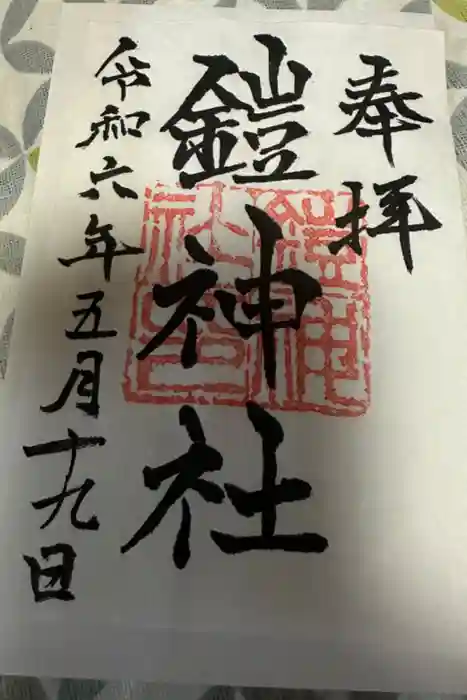 奉拝
鎧神社
令和六年五月十九日